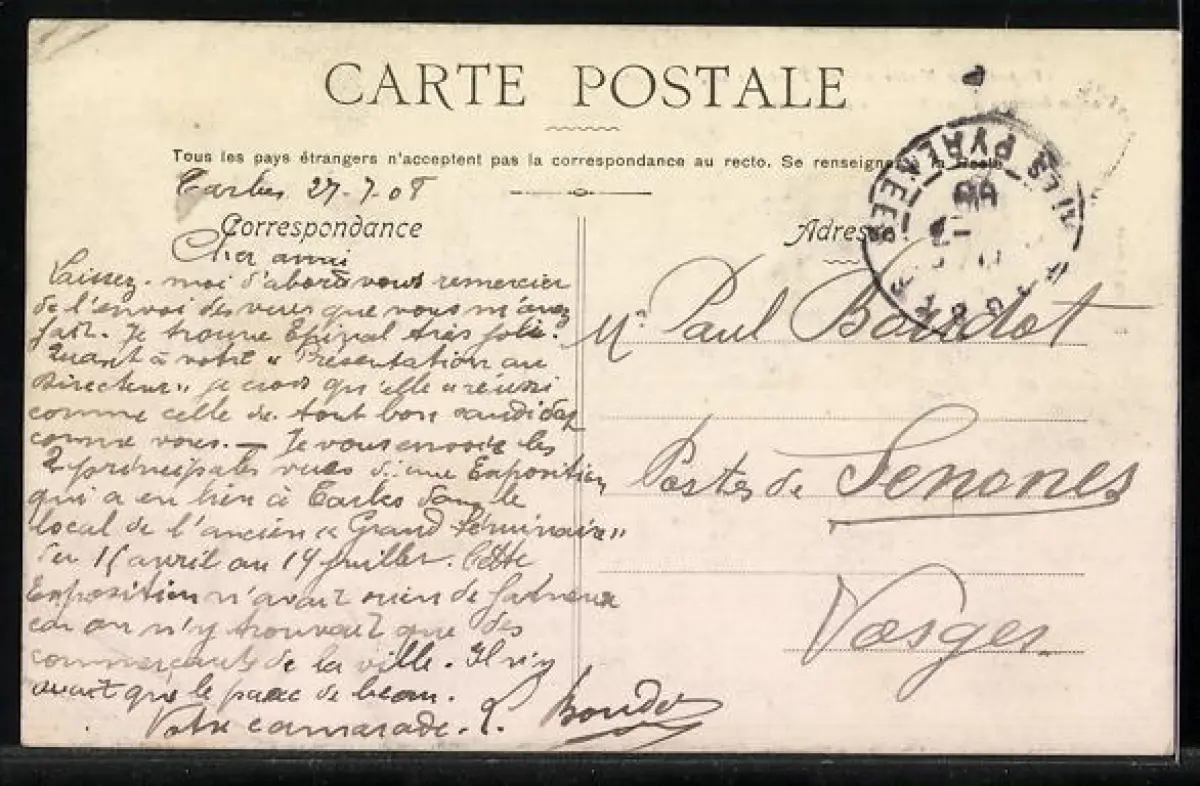 CARTE POSTALE
Tous les pays étrangers n'acceptent pas la correspondance au recto. Se renseigner
Tarbes 27-7-08
Correspondance
Adresse
PYRENEES
Cher ami
Laissez-moi d'abord vous remercier
de l'envoi des vues que vous m'avez
fait. Je trouve Epinal très jolie.
Quant à votre « Présentation au
Directeur » je crois qu'elle a réussi
comme celle de tout bon candidat
comme vous. — Je vous envoie les
2 principales vues d'une Exposition
qui a eu lieu à Tarbes dans le
local de l'ancien « Grand Séminaire »
du 15 avril au 14 juillet. Cette
Exposition n'avait rien de fameux
car on n'y trouvait que des
commerçants de la ville. Il n'y
avait que le parc de beau.
Votre camarade. L.
Mr Paul
Postes de Senones
Vosges